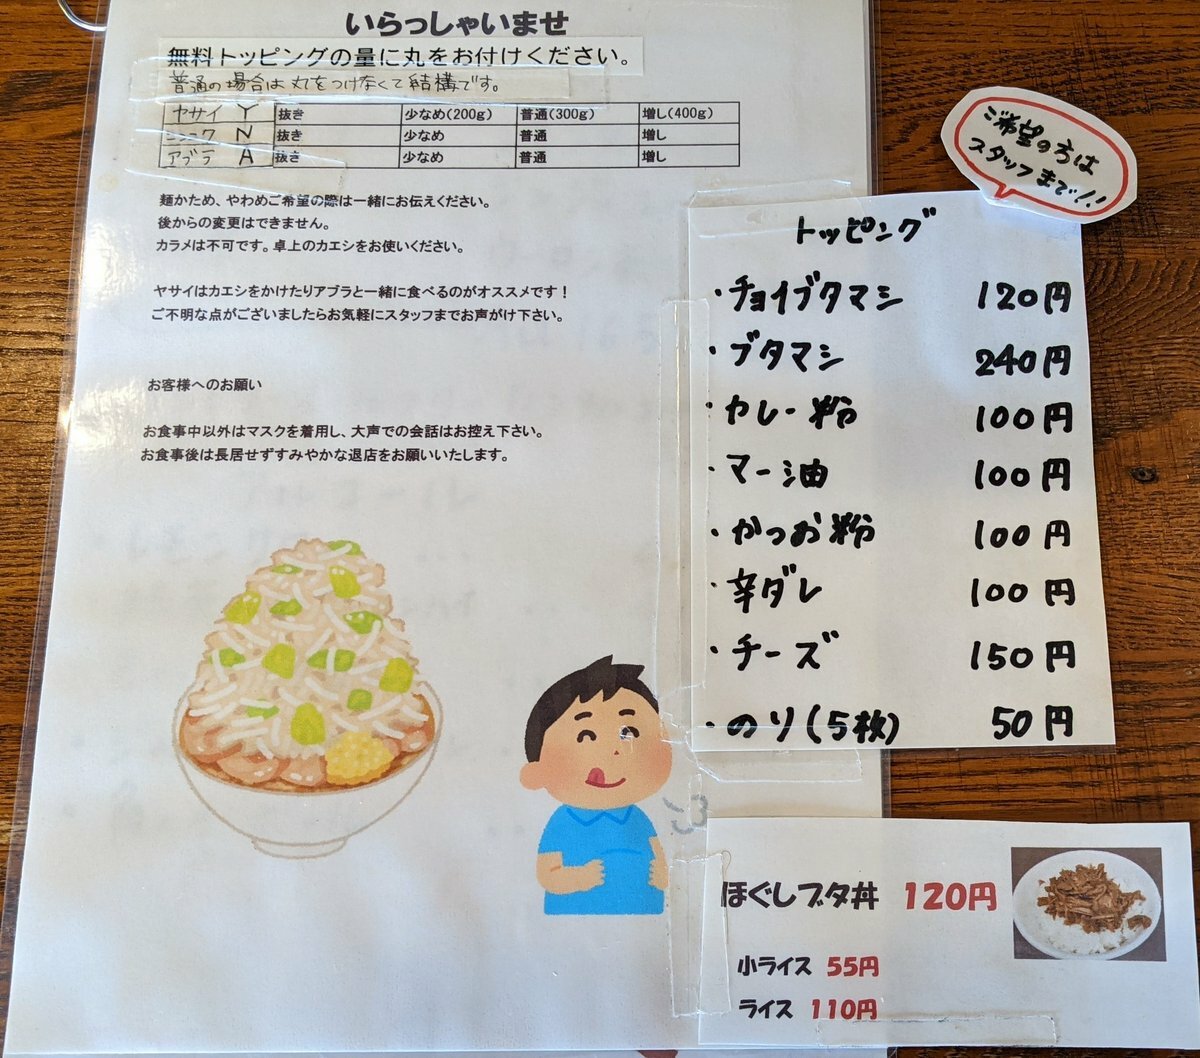 いらっしゃいませ
無料トッピングの量に丸をお付けください。
普通の場合は丸をつけなくて結構です。
ヤサイ Y 抜き 少なめ(200g) 普通(300g) 増し(400g)
ニンニク N 抜き 少なめ 普通 増し
アブラ A 抜き 少なめ 普通 増し
麺かため、やわめご希望の際は一緒にお伝えください。
後からの変更はできません。
カラメは不可です。卓上のカエシをお使いください。
ヤサイはカエシをかけたりアブラと一緒に食べるのがオススメです!
ご不明な点がございましたらお気軽にスタッフまでお声がけ下さい。
お客様へのお願い
お食事中以外はマスクを着用し、大声での会話はお控え下さい。
お食事後は長居せずすみやかな退店をお願いいたします。
ご希望の方は
スタッフまで!!
トッピング
・チョイブタマシ 120円
・ブタマシ 240円
・カレー粉 100円
・マー油 100円
・かつお粉 100円
・辛ダレ 100円
・チーズ 150円
・のり(5枚) 50円
ほぐしブタ丼 120円
小ライス 55円
ライス 110円